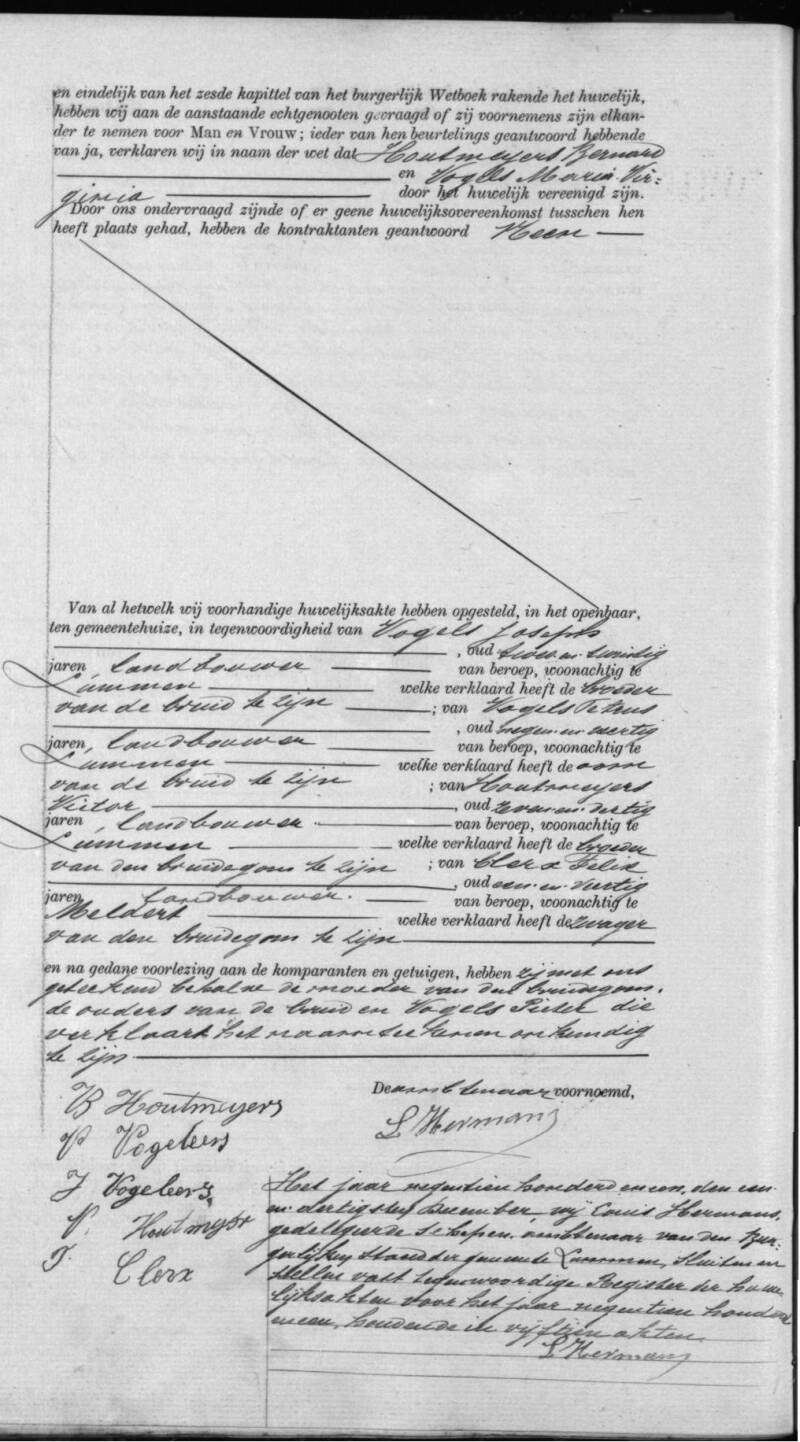 en eindelijk van het zesde kapittel van het burgerlijk Wetboek rakende het huwelijk,
hebben wij aan de aanstaande echtgenooten gevraagd of zij voornemens zijn elkan-
der te nemen voor Man en Vrouw; ieder van hen beurtelings geantwoord hebbende
van ja, verklaren wij in naam der wet dat Houtmeyers Bernard
en Vogels Maria Vir-
ginia door het huwelijk vereenigd zijn.
Door ons ondervraagd zijnde of er geene huwelijksovereenkomst tusschen hen
heeft plaats gehad, hebben de kontraktanten geantwoord Neen
Van al hetwelk wij voorhandige huwelijksakte hebben opgesteld, in het openbaar,
ten gemeentehuize, in tegenwoordigheid van Vogels Joseph
, oud en twintig
jaren, landbouwer van beroep, woonachtig te
Lummen welke verklaard heeft de broeder
van de bruid te zijn ; van Vogels Petrus
, oud negen en veertig
jaren, landbouwer van beroep, woonachtig te
Lummen welke verklaard heeft de oom
van de bruid te zijn ; van Houtmeyers
Victor , oud zeven en dertig
jaren, landbouwer van beroep, woonachtig te
Lummen welke verklaard heeft de broeder
van den bruidegom te zijn ; van Clerx Felix
, oud een en dertig
jaren landbouwer. van beroep, woonachtig te
Meldert welke verklaard heeft de zwager
van den bruidegom te zijn
en na gedane voorlezing aan de komparanten en getuigen, hebben zij met ons
geteekend behalve de moeder van den bruidegom,
de ouders van de bruid en Vogels Pieter die
verklaart het naamteekenen onkundig
te zijn
De ambtenaar voornoemd,
B Houtmeyers
L Hermans
V Vogeleers
J Vogeleers
V. Houtmeyer
F Clerx
Het jaar negentien honderd en een, den een
en dertigsten December, wij Louis Hermans,
gedelegeerde schepen, ambtenaar van den Bur-
gerlijken Stand der gemeente Lummen, sluiten en
stellen vast tegenwoordige Register der huwe
lijksakten voor het jaar negentien honderd
en een, houdende in vijftien akten.
L Hermans